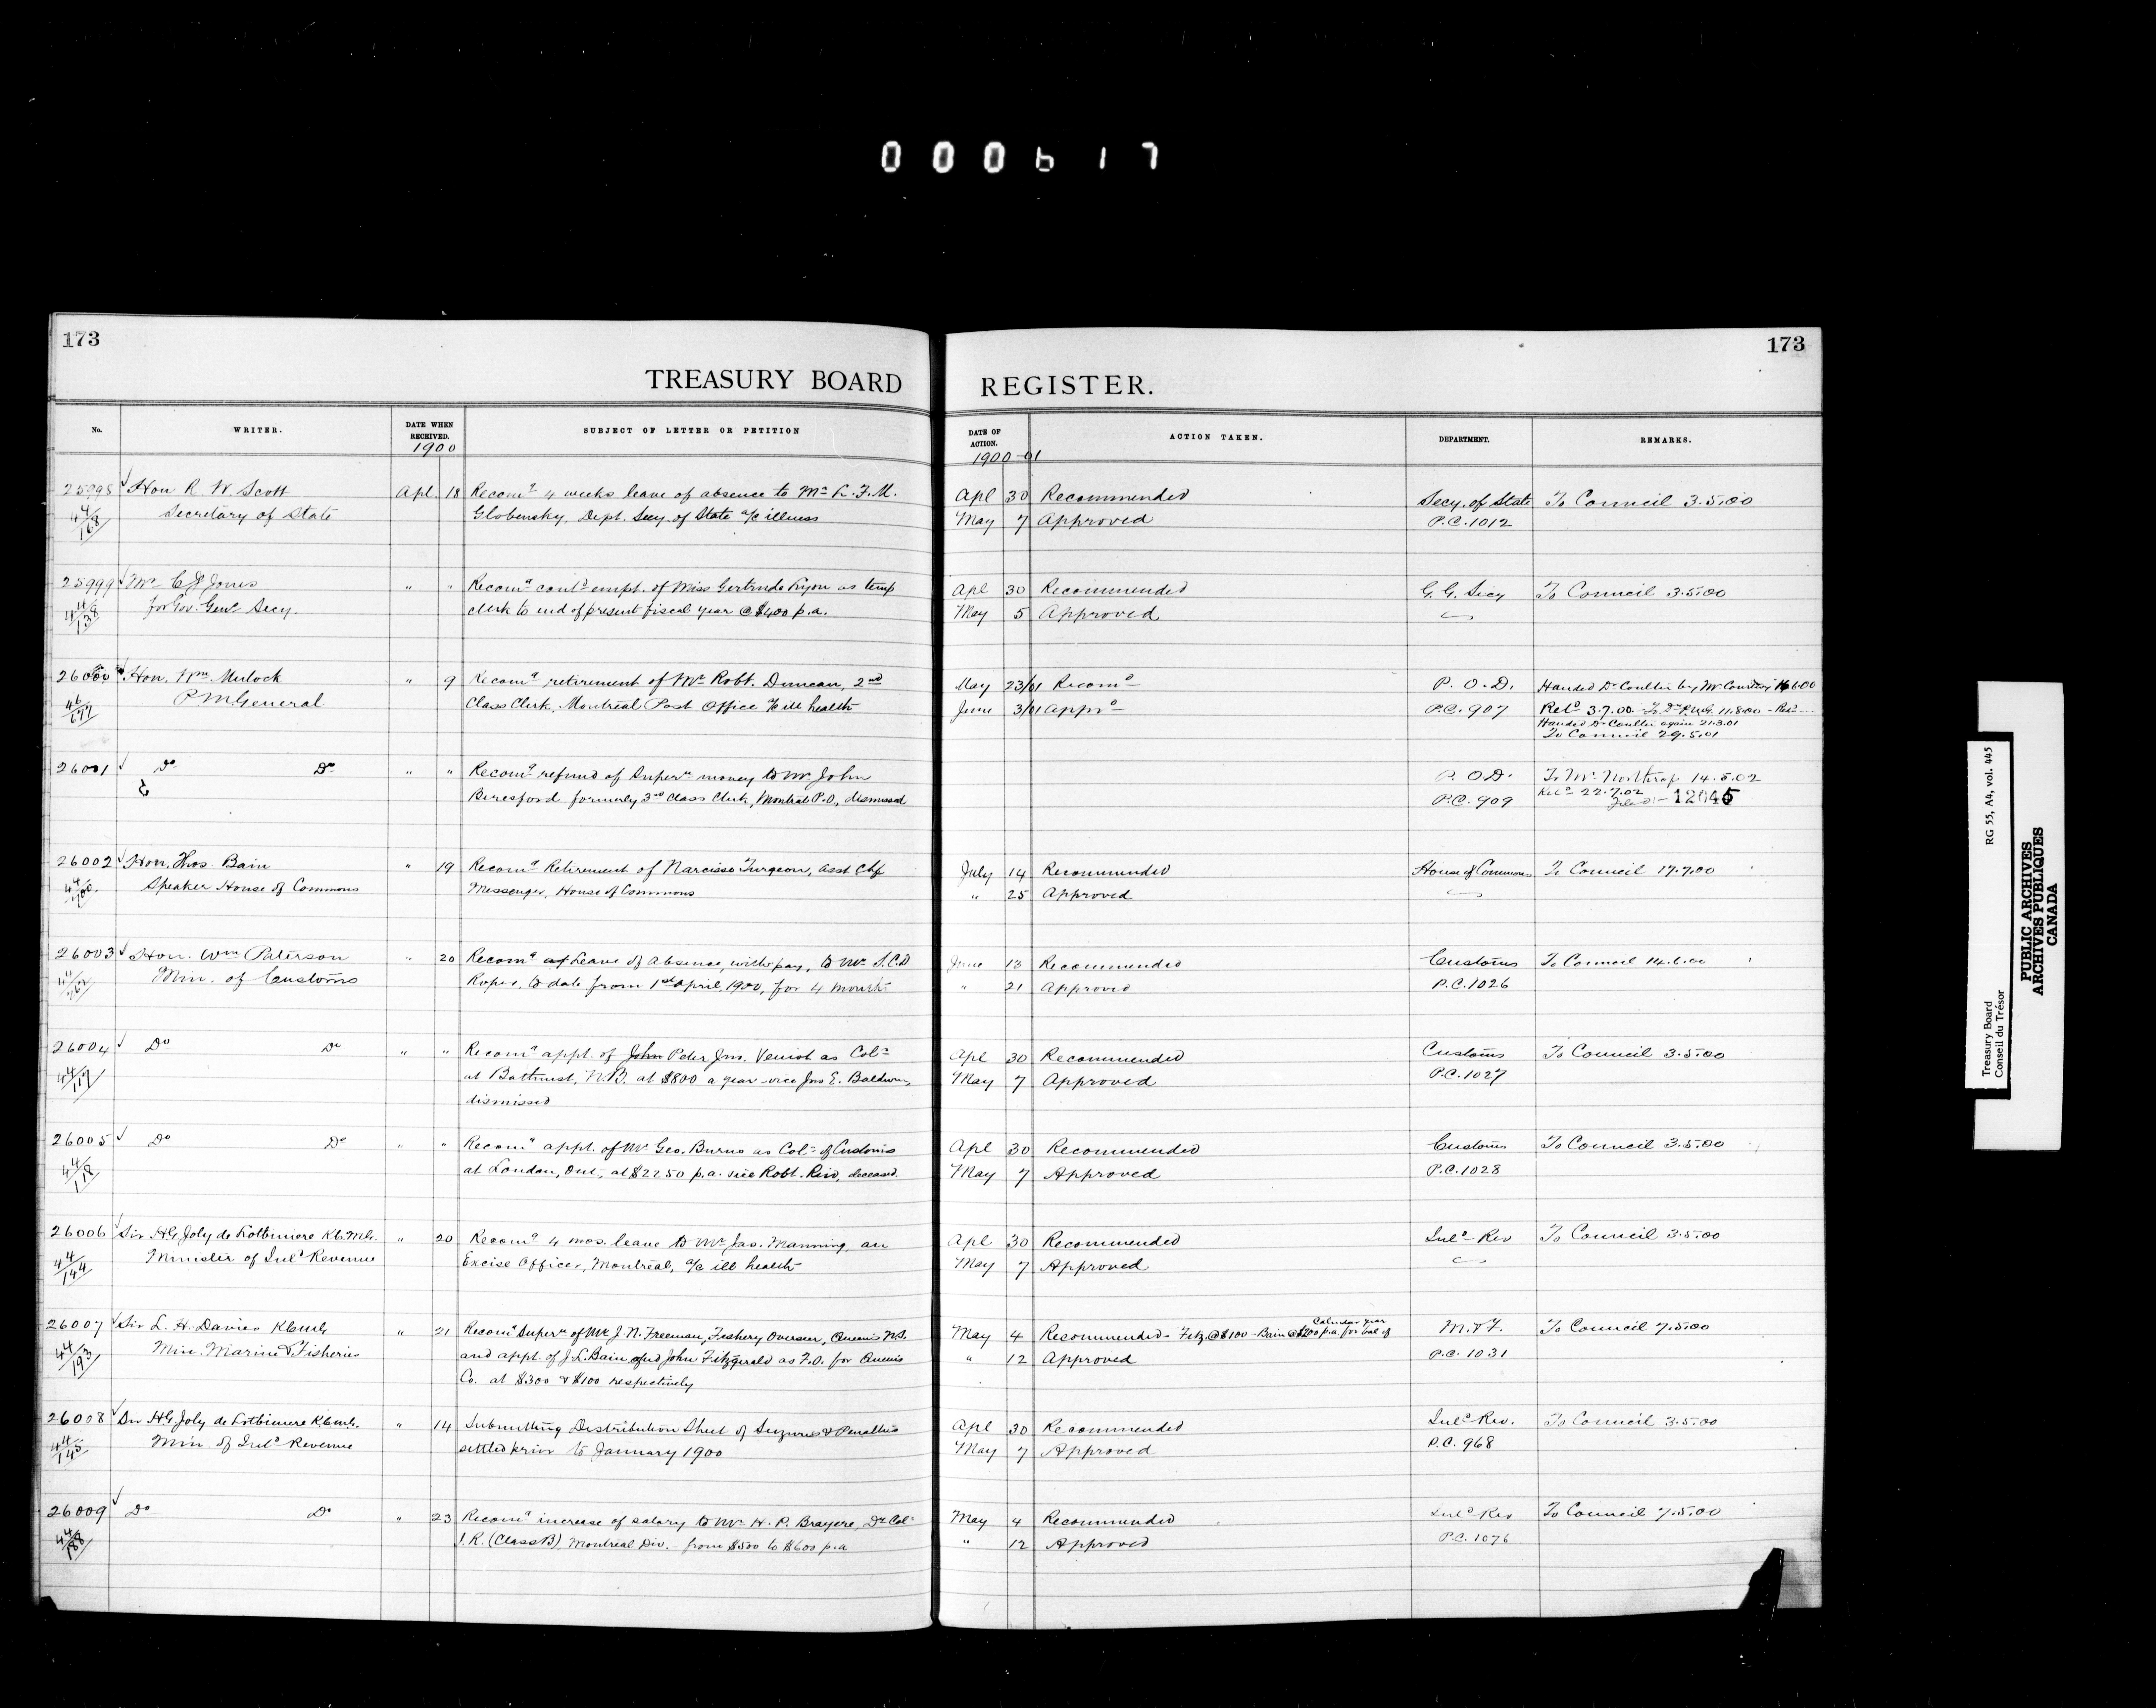 000617
173
173
TREASURY BOARD REGISTER.
No. WRITER. DATE WHEN RECEIVED. SUBJECT OF LETTER OR PETITION DATE OF ACTION. ACTION TAKEN. DEPARTMENT. REMARKS.
1900 1900-01
25998 Hon R. W. Scott Apl. 18 Recomg 4 weeks leave of absence to Mr L. F. M. Apl 30 Recommended Secy. of State To Council 3.5.00
44/168 Secretary of State Globensky, Dept. Secy. of State a/c illness May 7 Approved P.C. 1012
25999 Mr C. J. Jones " " Recomg contd empt. of Miss Gertrude Lyon as temp Apl 30 Recommended G. G. Secy To Council 3.5.00
for Gov. Genl Secy. clerk to end of present fiscal year @ $400 p.a. May 5 Approved
26000 Hon. Wm. Mulock " 9 Recomg retirement of Mr Robt. Duncan, 2nd May 23/01 Recomd P. O. D. Handed Dr Coulter by Mr Courtney 16.6.00
46/177 P M General Class Clerk, Montreal Post Office a/c ill health June 3/01 Appd P.C. 907 Retd 3.7.00
Handed Dr Coulter again 21.3.01
To Council 29.5.01
26001 Do Do " " Recomg refund of Supern money to Mr John P. O. D. To Mr Northrop 14.5.02
Beresford formerly 3rd Class Clerk, Montreal P.O., dismissed P.C. 909 Retd 22.7.02 12045
26002 Hon. Thos. Bain " 19 Recomg Retirement of Narcisse Turgeon, asst Chf July 14 Recommended House of Commons To Council 17.7.00
Speaker House of Commons Messenger, House of Commons " 25 Approved
26003 Hon. Wm Paterson " 20 Recomg Leave of Absence, with pay, to Mr S.C.D June 13 Recommended Customs To Council 14.6.00
Min. of Customs Roper, to date from 1st April, 1900, for 4 months " 21 Approved P.C. 1026
26004 Do Do " " Recomg appt. of John Peter Jno. Veniot as Colr Apl 30 Recommended Customs To Council 3.5.00
44/117 at Bathurst, N.B. at $800 a year vice Jno E. Baldwin, May 7 Approved P.C. 1027
dismissed
26005 Do Do " " Recomg appt. of Mr Geo. Burns as Colr of Customs Apl 30 Recommended Customs To Council 3.5.00
at London, Ont., at $2250 p.a. vice Robt. Reid, deceased. May 7 Approved P.C. 1028
26006 Sir H G Joly de Lotbiniere K.C.M.G. " 20 Recomg 4 mos. leave to Mr Jas. Manning, an Apl 30 Recommended Inld Rev To Council 3.5.00
44/144 Minister of Inld Revenue Excise Officer, Montreal, a/c ill health May 7 Approved
26007 Sir L. H. Davies K.C.M.G. " 21 Recomg Supern of Mr J. N. Freeman, Fishery Overseer, Queens N.S. May 4 Recommended - Fitz. @ $100 - Bain @ $200 p.a. for bal of Calendar year M. & F. To Council 7.5.00
44/193 Min. Marine & Fisheries and appt. of J. L. Bain and John Fitzgerald as F.O. for Queens " 12 Approved P.C. 1031
Co. at $300 & $100 respectively
26008 Sir H G Joly de Lotbiniere K.C.M.G. " 14 Submitting Distribution Sheet of Seizures & Penalties Apl 30 Recommended Inld Rev. To Council 3.5.00
44/145 Min. of Inld Revenue settled prior to January 1900 May 7 Approved P.C. 968
26009 Do Do " 23 Recomg increase of salary to Mr H. P. Brayere, Dy Colr May 4 Recommended Inld Rev To Council 7.5.00
I. R. (Class B), Montreal Div. from $500 to $600 p.a " 12 Approved P.C. 1076
Treasury Board RG 55, A4, vol. 445
Conseil du Trésor
PUBLIC ARCHIVES
ARCHIVES PUBLIQUES
CANADA